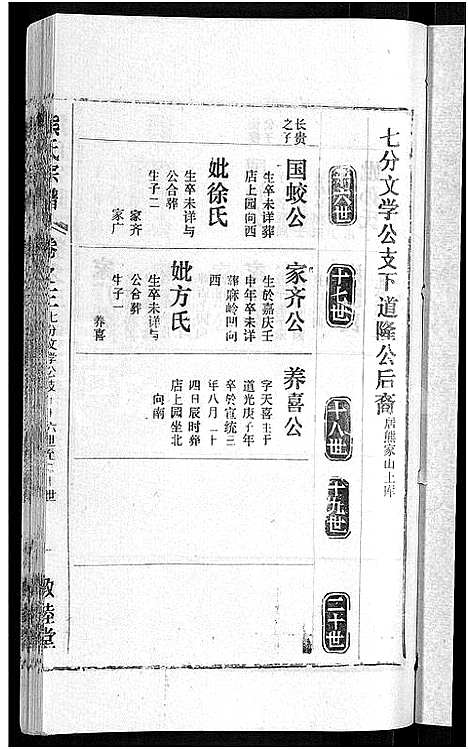 七分文学公支下道隆公后裔
居熊家山上库
十六世
十七世
十八世
十九世
二十世
长贵
之子
国蛟公
生卒未详葬
店上园向西
妣徐氏
生卒未详与
公合葬
生子二
家齐
家广
家齐公
生於嘉庆壬
申年卒未详
葬麻岭凹向
西
妣方氏
生卒未详与
公合葬
生子一
养喜
养喜公
字天喜生于
道光庚子年
卒於宣统三
年八月二十
四日辰时葬
店上园坐北
向南
熊氏宗谱
卷之三
七份文学公支
十六世至二十世
一
敦睦堂